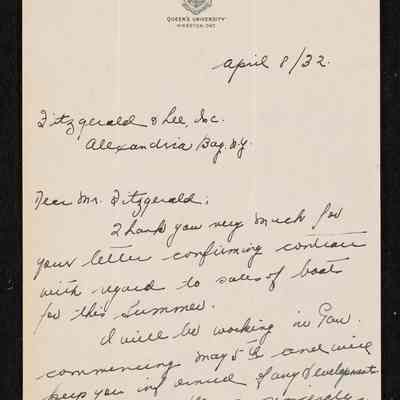 QUEEN'S UNIVERSITY
KINGSTON, ONT.
April 8/32.
Fitzgerald & Lee, Inc.
Alexandria Bay. N.Y.
Dear Mr. Fitzgerald;
I thank you very much for
your letter confirming contract
with regard to sales of boats
for this Summer.
I will be working in Gan.
commencing May 5th and will
keep you informed of any developments